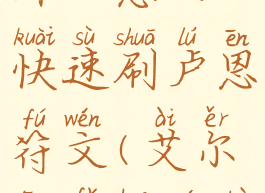 kuài sù shuā lú ēn
快速刷卢恩
fú wén ài ěr
符文(艾尔